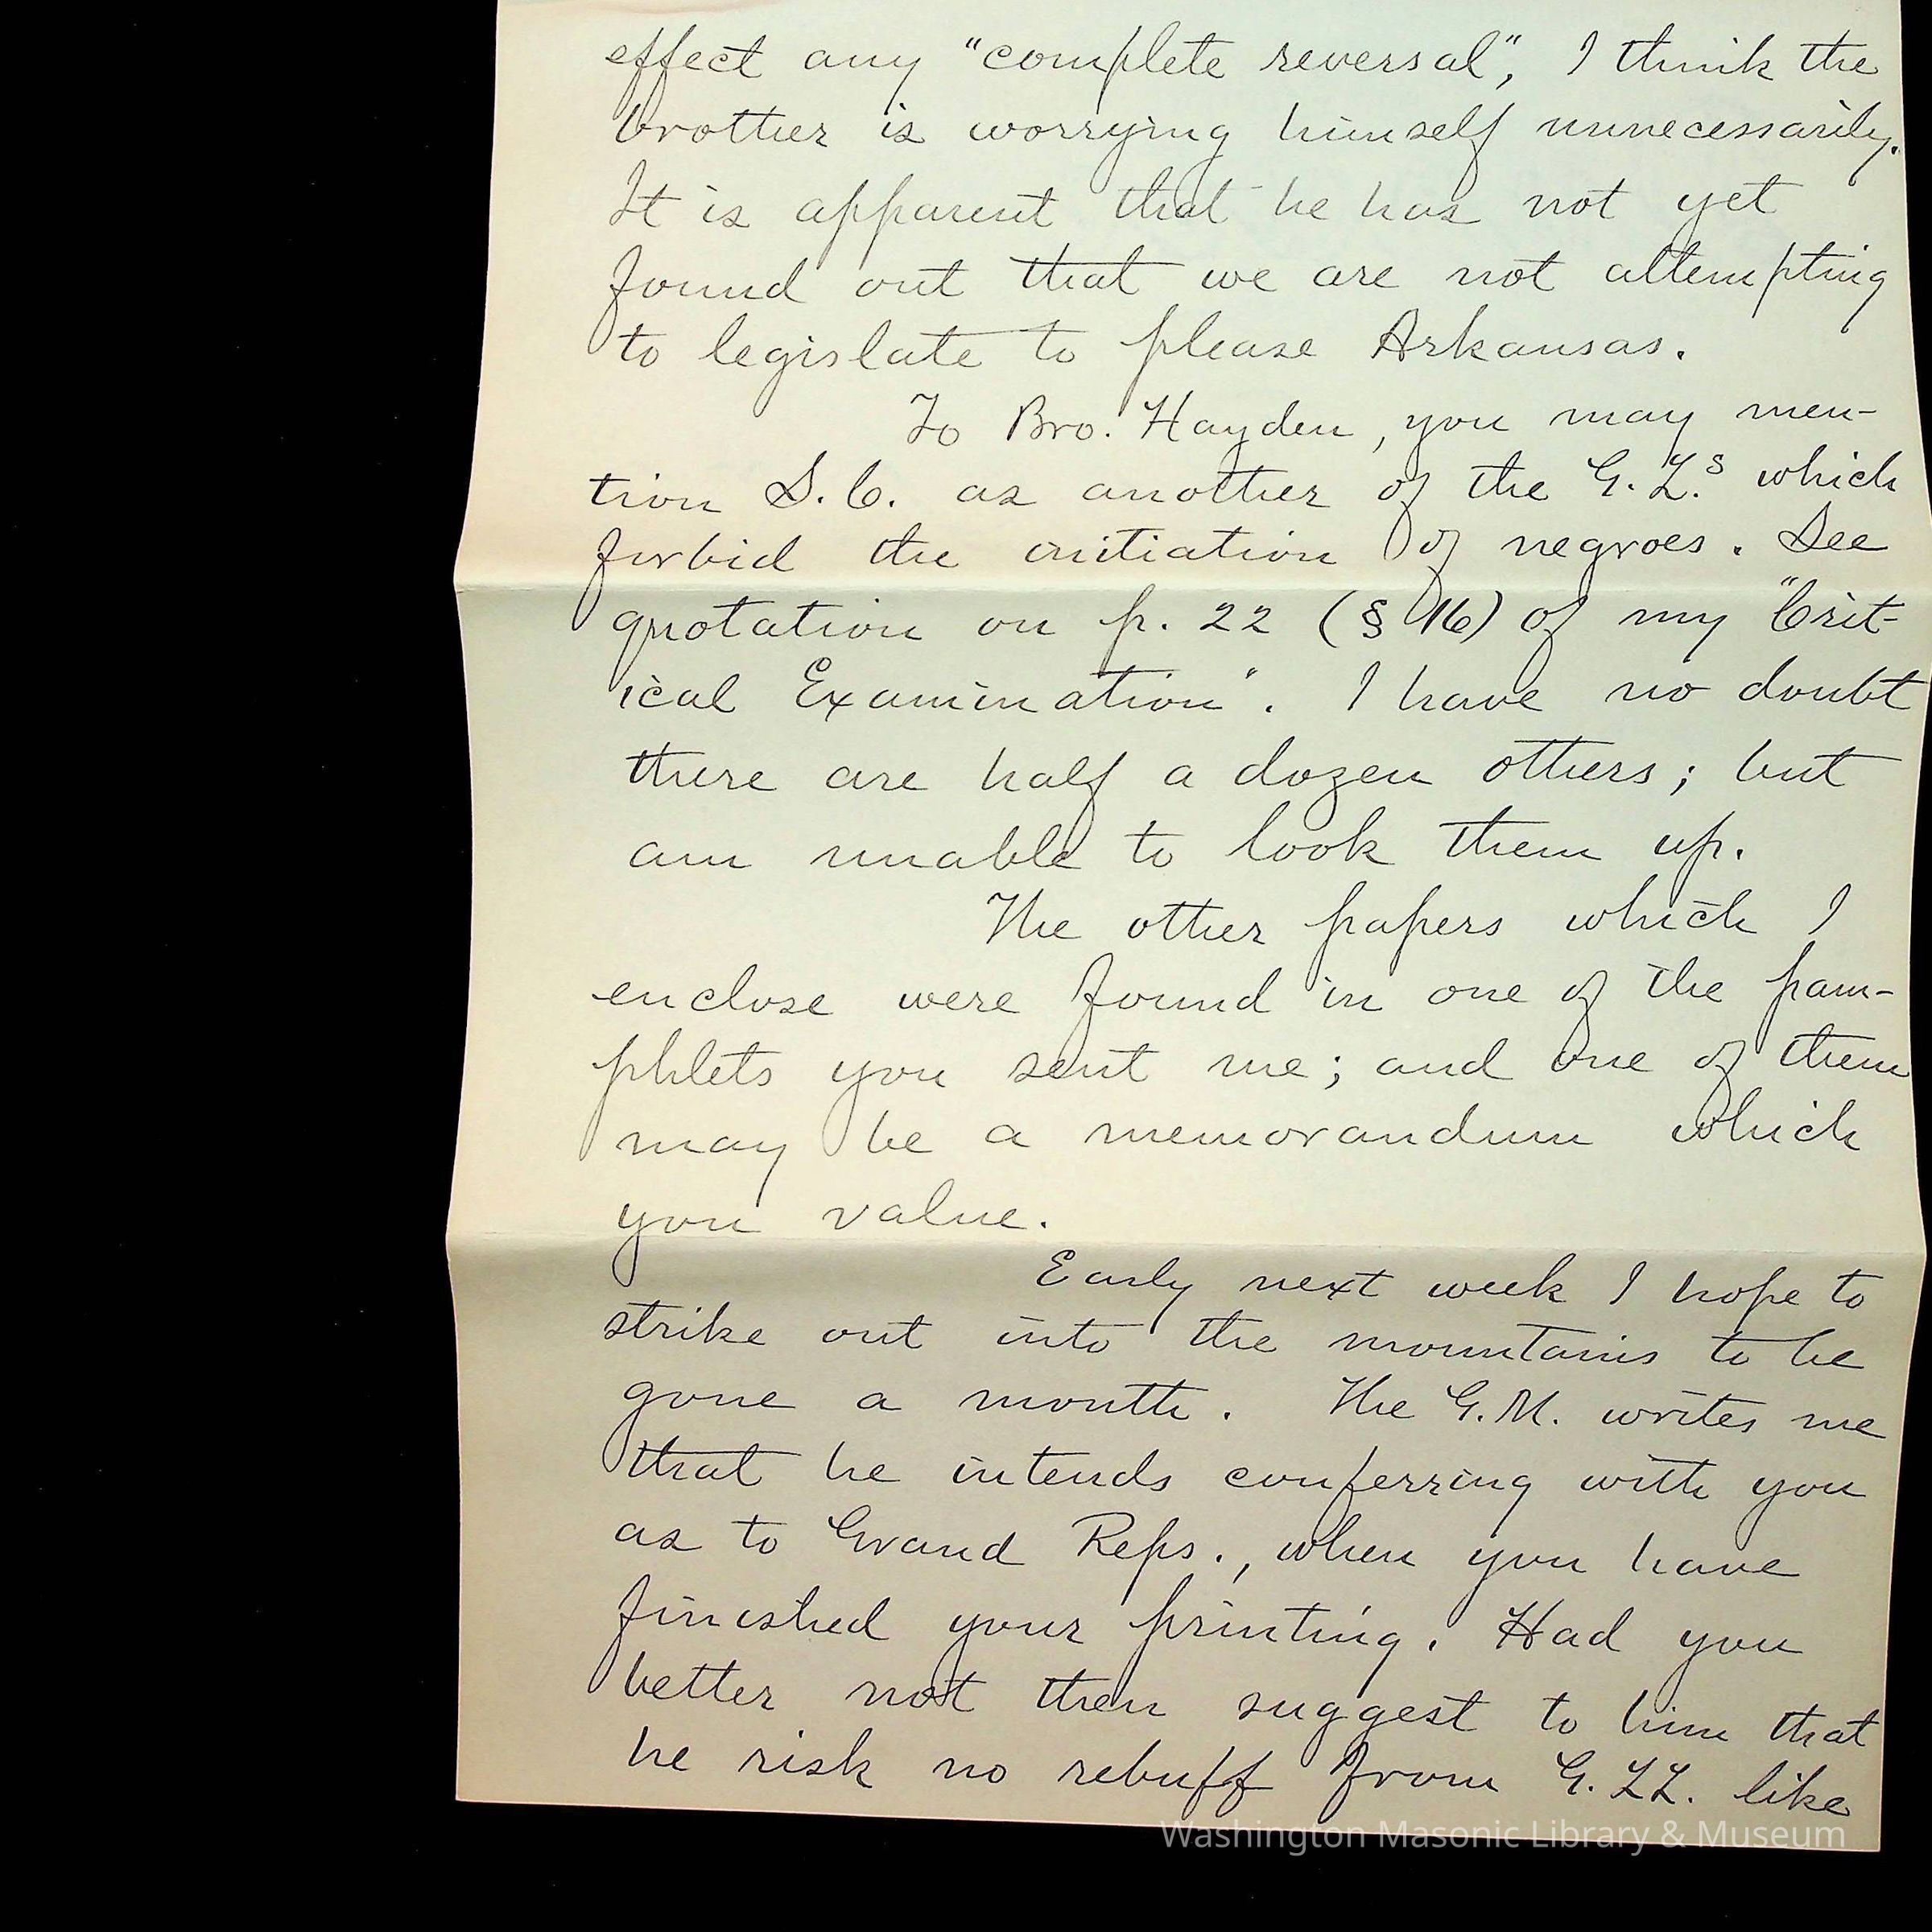 effect any "complete reversal", I think the
brother is worrying himself unnecessarily.
It is apparent that he has not yet
found out that we are not attempting
to legislate to please Arkansas.
To Bro. Hayden, you may men-
tion S.C. as another of the G.L.s which
forbid the initiation of negroes. See
quotation on p. 22 (§ 16) of my "Crit-
ical Examination". I have no doubt
there are half a dozen others; but
am unable to look them up.
The other papers which I
enclose were found in one of the pam-
phlets you sent me; and one of them
may be a memorandum which
you value.
Early next week I hope to
strike out into the mountains to be
gone a month. The G.M. writes me
that he intends conferring with you
as to Grand Reps., when you have
finished your printing. Had you
better not then suggest to him that
he risk no rebuff from G.LL. like
Washington Masonic Library & Museum